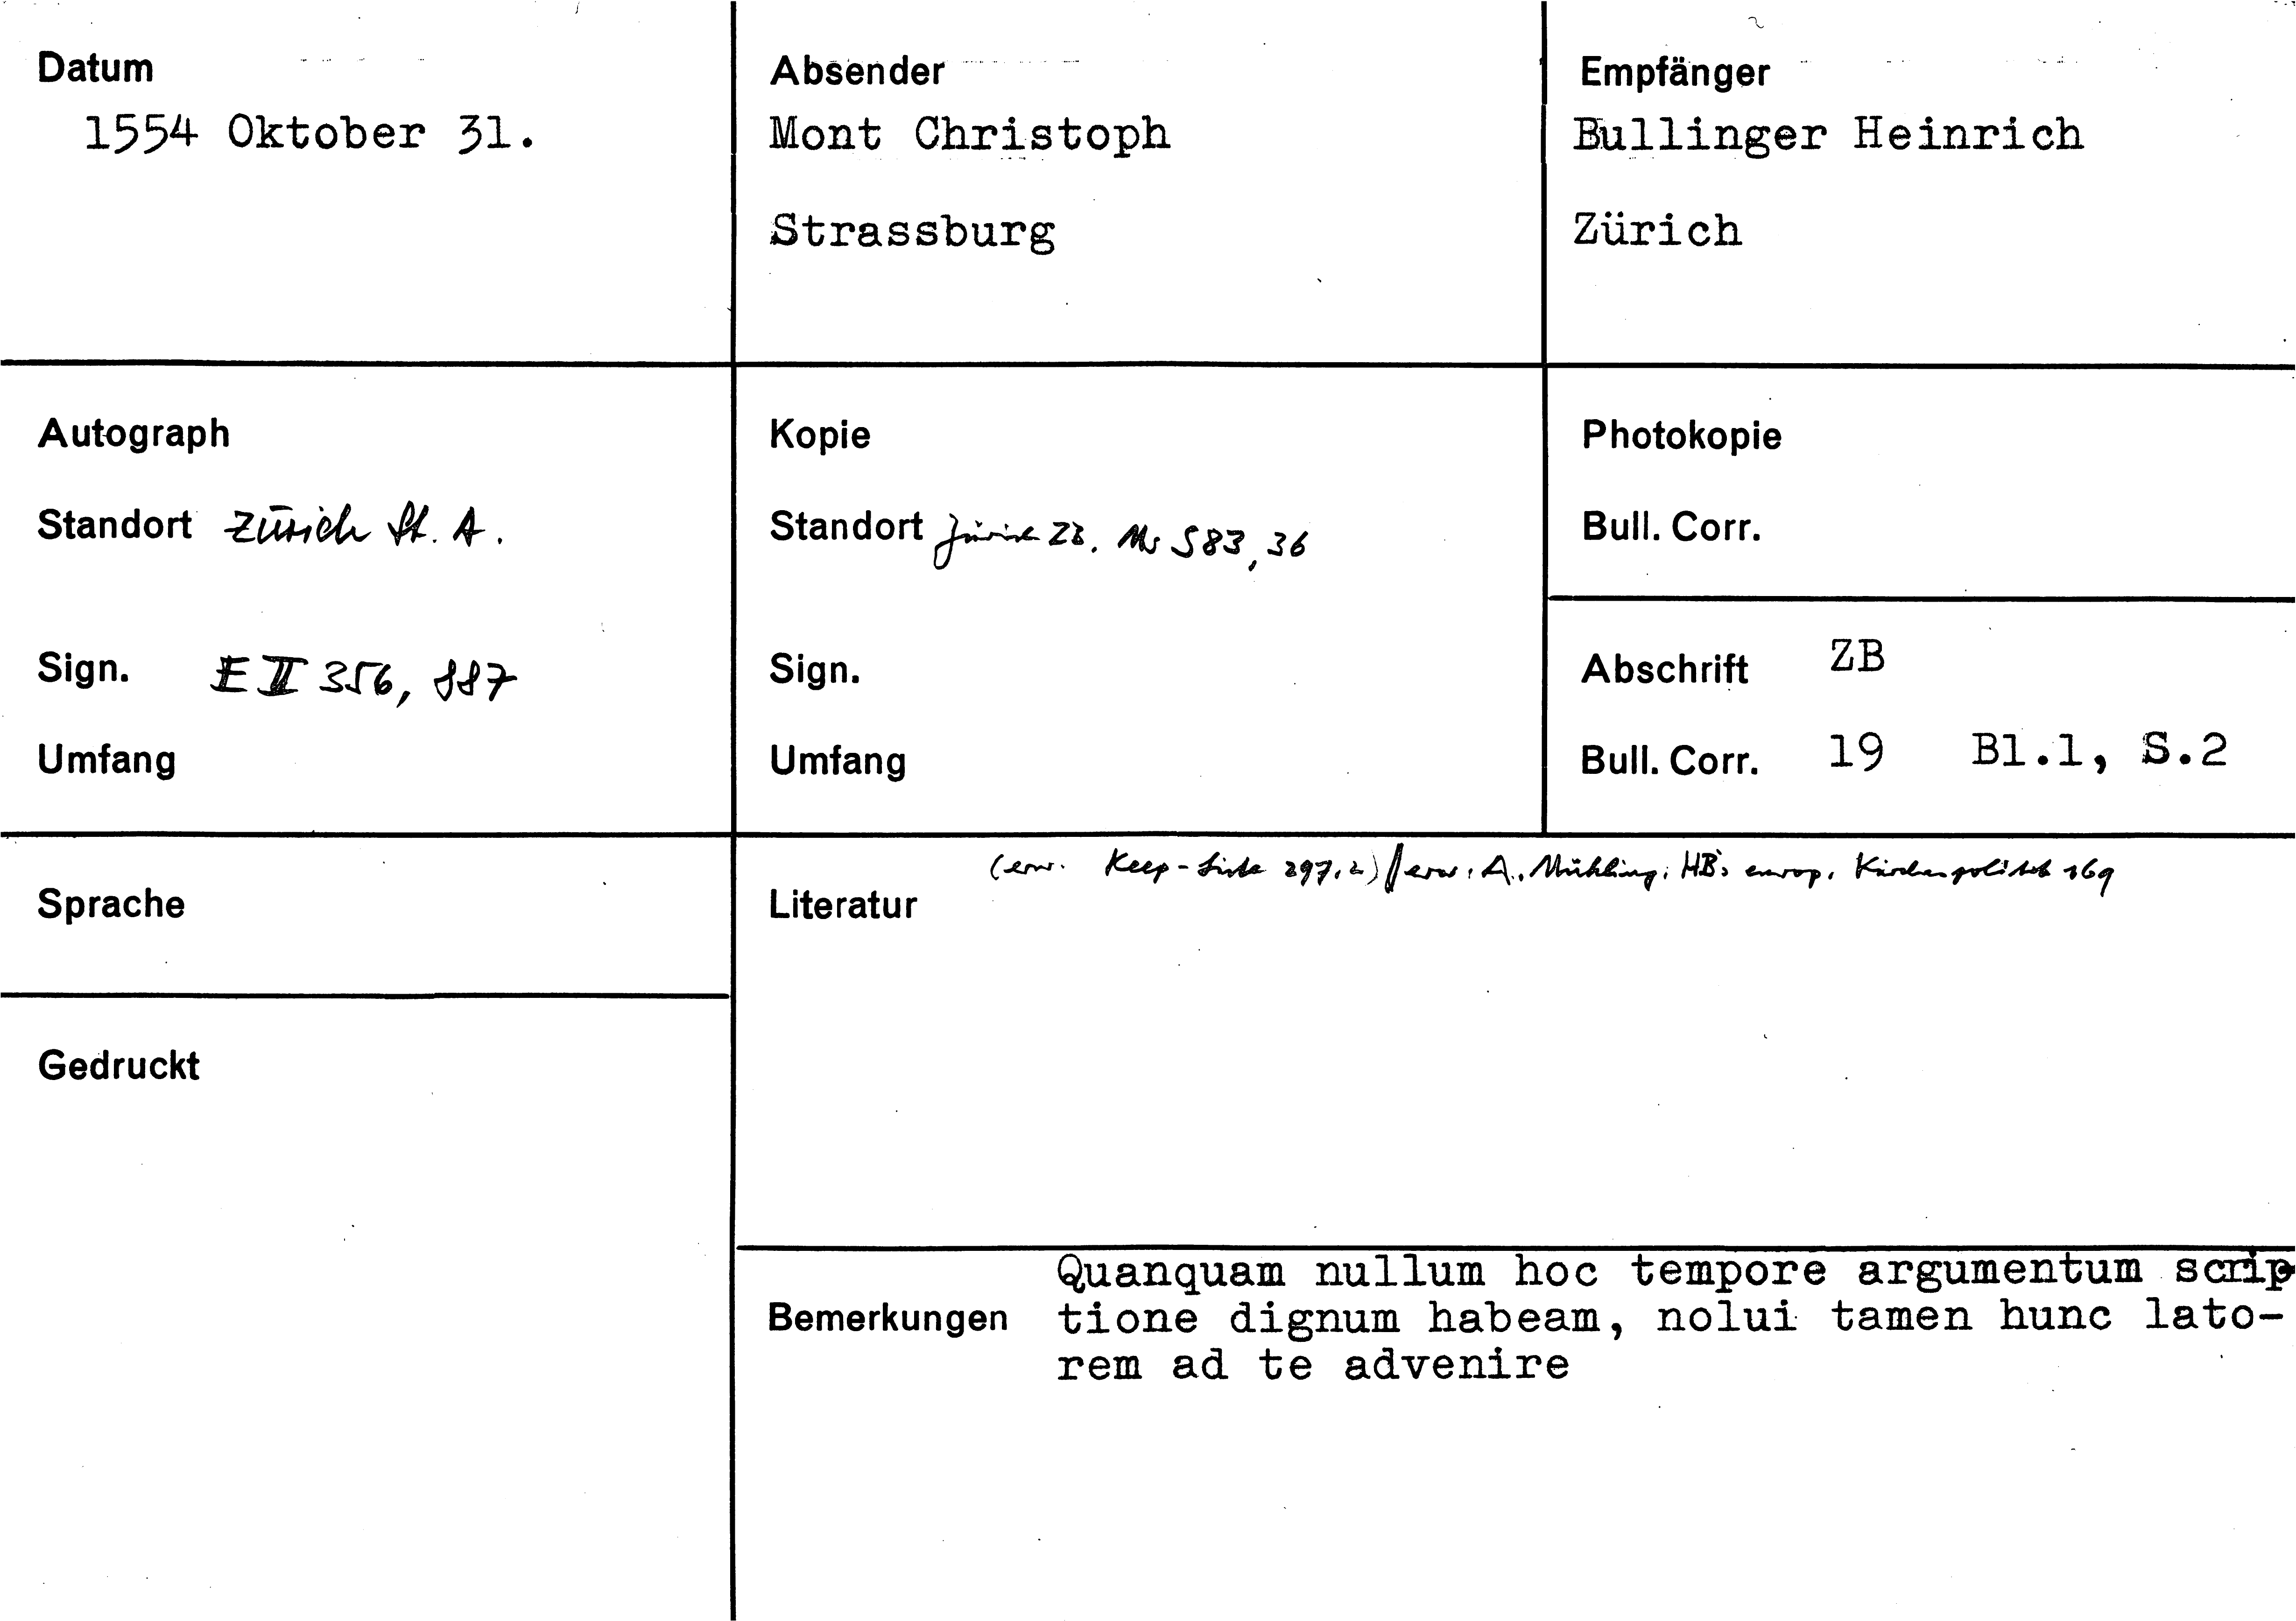 Datum
1554 Oktober 31.
Absender
Mont Christoph
Strassburg
Empfänger
Bullinger Heinrich
Zürich
Autograph
Standort Zürich St. A.
Sign. E II 356, 887
Umfang
Kopie
Standort Zürich ZB. Ms S 83, 36
Sign.
Umfang
Photokopie
Bull. Corr.
Abschrift ZB
Bull. Corr. 19 Bl.1, S.2
Sprache
Gedruckt
Literatur (erw. Keep-Liste 297,2) // erw. A. Mühling, HB's europ. Kirchenpolitik 169
Bemerkungen
Quanquam nullum hoc tempore argumentum scrip-
tione dignum habeam, nolui tamen hunc lato-
rem ad te advenire